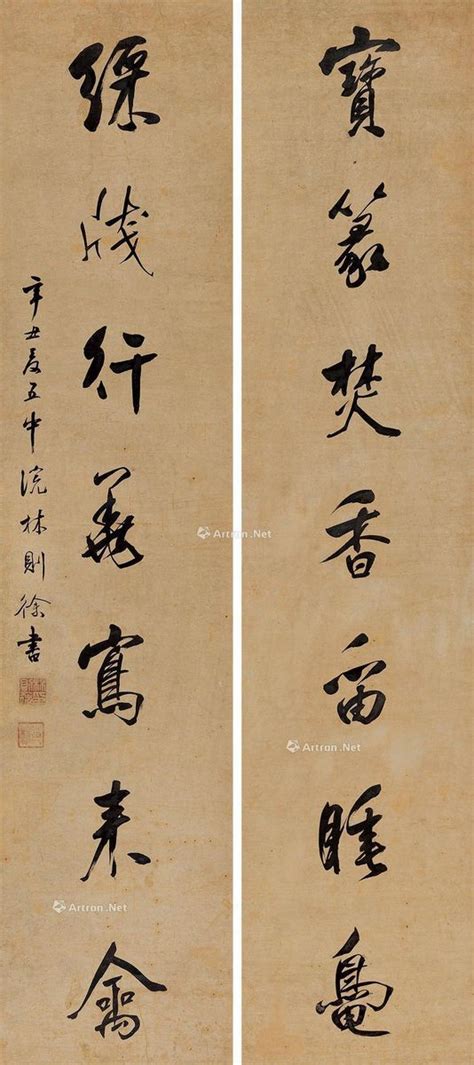 寶篆焚香留睡鴨
綵牋行墨寫來禽
辛丑夏五中浣林則徐書
Artron.Net
Artron.Net
Artron.Net